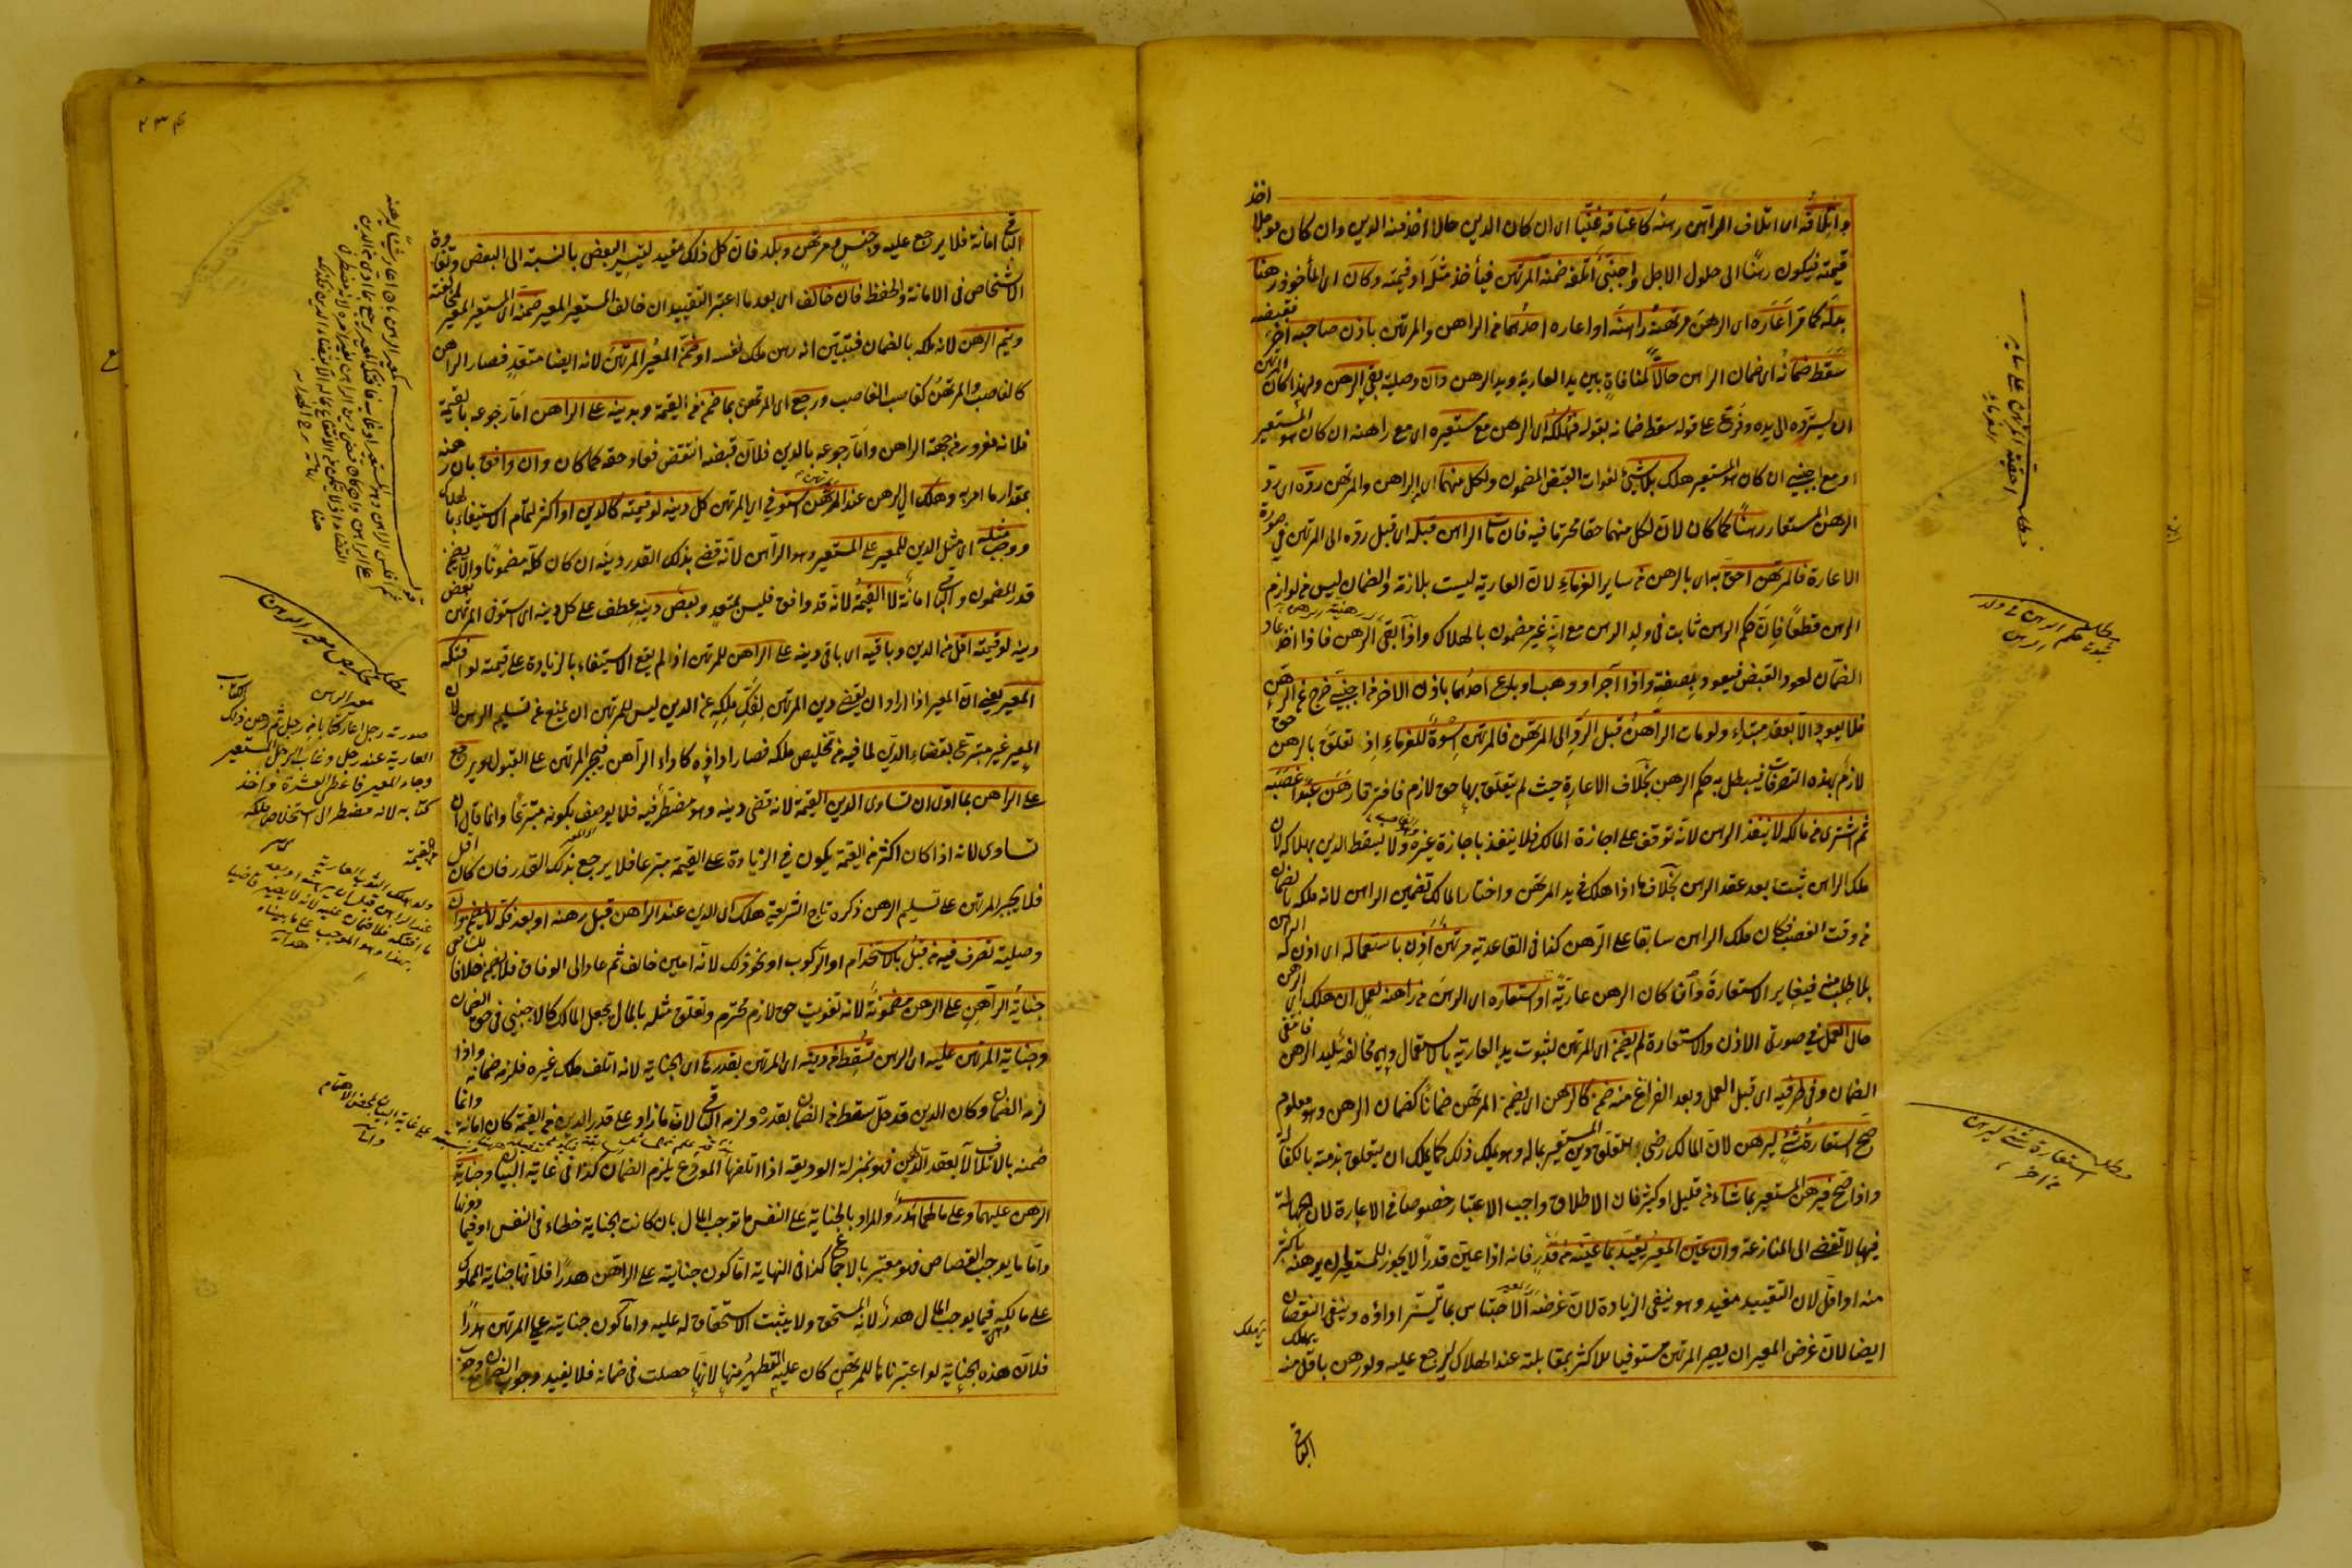 واتلافه اى اتلاف الراهن رهنه كاعتاقه غنيا اى ان كان الدين حالا اخذ منه الدين وان كان مؤجلا اخذ
قيمته فيكون رهنا الى حلول الاجل واجنبى اتلفه ضمنه المرتهن فيأخذ مثله او قيمته وكان اى المأخوذ رهنا
بدله كما مر اعاره اى الرهن مرتهنه راهنه او اعاره احدهما من الراهن والمرتهن باذن صاحبه آخر فقبضه
سقط ضمانه اى ضمان الراهن حالا لمنافاة بين يد العارية ويد الرهن وان وصلية بقى الرهن ولهذا كان للمرتهن
ان يسترده الى يده وفرع على قوله سقط ضمانه بقوله فهلكه اى الرهن مع مستعيره اى مع راهنه ان كان هو المستعير
او مع اجنبى ان كان هو المستعير هلك بلا شىء لفوات القبض المضمون ولكل منهما اى الراهن والمرتهن رده اى يرد
الرهن المستعار رهنا كما كان لان لكل منهما حقا محترما فيه فان مات الراهن قبله اى قبل رده الى المرتهن فى صورة
الاعارة فالمرتهن احق به اى بالرهن من ساير الغرماء لان العارية ليست بلازمة والضمان ليس من لوازم
الرهن قطعا فان حكم الرهن ثابت فى ولد الرهن مع انه غير مضمون بالهلاك واذا بقى الرهن فاذا اخذ عاد
الضمان لعود القبض فيعود بصفته واذا آجر او وهب او باع احدهما باذن الاخر من اجنبى خرج من الرهن
فلا يعود الا بعقد مبتداء ولو مات الراهن قبل الرد الى المرتهن فالمرتهن اسوة للغرماء اذ تعلق بالرهن حق
لازم بهذه التصرفات فيبطل به حكم الرهن بخلاف الاعارة حيث لم يتعلق بها حق لازم فافترقا رهن عبدا غصبه
ثم اشترى من مالكه لا ينفذ الرهن لانه توقف على اجازة المالك فلا ينفذ باجازة غيره ولا يسقط الدين بهلاكه لان
ملك الراهن ثبت بعد عقد الرهن بخلاف ما اذا هلك فى يد المرتهن واختار المالك تضمين الراهن لانه ملكه بالضمان
من وقت الغصب فكان ملك الراهن سابقا على الرهن كذا فى القاعدية مرتهن اذن باستعماله اى اذن له الراهن
بلا طلب منه فيغاير الاستعارة واما كان الرهن عارية او استعاره اى الرهن من راهنه لعمل ان هلك اى الرهن
حال العمل فى صورتى الاذن والاستعارة لم يضمن اى المرتهن لثبوت يد العارية بالاستعمال وهى مخالفة ليد الرهن فانتفى
الضمان وفى طرفيه اى قبل العمل وبعد الفراغ منه ضمن كالرهن اى يضمن المرتهن ضمانا كضمان الرهن وهو معلوم
صح استعارة شىء ليرهن لان المالك رضى بتعلق دين المستعير بماله وهو يملك ذلك كما يملك ان يتعلق بذمته بالكفالة
واذا صح فيرهن المستعير بما شاء من قليل او كثير فان الاطلاق واجب الاعتبار خصوصا فى الاعارة لان الجهالة
فيها لا تفضى الى المنازعة وان عين المعير تقيد بما عينه من قدر فانه اذا عين قدرا لا يجوز للمستعير ان يرهنه باكثر
منه او اقل لان التقييد مفيد وهو ينفى الزيادة لان غرضه الاحتباس بما تيسر اداؤه وينفى النقصان
ايضا لان غرض المعير ان يصير المرتهن مستوفيا للاكثر بمقابلته عند الهلاك ليرجع عليه ولو رهن باقل منه يهلك
الباقى
مطلب احقية المرتهن على ساير الغرماء
مطلب ثبوت حكم الرهن فى ولد الرهن
مطلب استعارة شىء ليرهن
٢٣٤
الباقى امانة فلا يرجع عليه وجنس ومرتهن وبلد فان كل ذلك مفيد لتيسر البعض بالنسبة الى البعض وتفاوة
الاشخاص فى الامانة والحفظ فان خالف اى بعد ما اعتبر التقييد ان خالف المستعير المعير ضمنه اى المستعير المعير لمخالفته
ويتم الرهن لانه ملكه بالضمان فتبين انه رهن ملك نفسه او ضمن المعير المرتهن لانه ايضا متعد فصار الراهن
كالغاصب والمرتهن كغاصب الغاصب ورجع اى المرتهن بما ضمن من القيمة وبدينه على الراهن اما رجوعه بالقيمة
فلانه مغرور من جهة الراهن واما رجوعه بالدين فلان قبضه انتقض فعاد حقه كما كان وان وافق بان رهنه
بمقدار ما امر به وهلك اى الرهن عند المرتهن استوفى اى المرتهن كل دينه لو قيمته كالدين او اكثر لتمام الاستيفاء بالهلاك
ووجب مثله اى مثل الدين للمعير على المستعير وهو الراهن لانه قضى بذلك القدر دينه ان كان كله مضمونا والا يضمن
قدر المضمون والباقى امانة لا القيمة لانه قد وافق فليس بمتعد وبعض دينه عطف على كل دينه اى استوفى المرتهن بعض
دينه لو قيمته اقل من الدين وباقيه اى باقى دينه على الراهن للمرتهن اذا لم يقع الاستيفاء بالزيادة على قيمته لو افتكه
المعير يعنى ان المعير اذا اراد ان يقضى دين المرتهن ليفك ملكه عن الدين ليس للمرتهن ان يمتنع عن تسليم الرهن لان
المعير غير متبرع بقضاء الدين لما فيه من تخليص ملكه فصار اداؤه كاداء الراهن فيجبر المرتهن على القبول ويرجع
على الراهن بما ادى ان تساوى الدين القيمة لانه قضى دينه وهو مضطر فيه فلا يوصف بكونه متبرعا وانما قال ان
تساوى لانه اذا كان اكثر من القيمة يكون فى الزيادة على القيمة متبرعا فلا يرجع بذلك القدر فان كان اقل
فلا يجبر المرتهن على تسليم الرهن ذكره تاج الشريعة هلك اى الدين عند الراهن قبل رهنه او بعد فكه لا يضمن وان
وصلية تصرف فيه من قبل بالاستخدام او الركوب او نحو ذلك لانه امين خالف ثم عاد الى الوفاق فلا يضمن خلافا للشافعى
جناية الراهن على الرهن مضمونة لانه تفويت حق لازم محترم وتعلق مثله بالمال يجعل المالك كالاجنبى فى حق الضمان
وجناية المرتهن عليه اى الرهن تسقط من دينه اى المرتهن بقدرها اى الجناية لانه اتلف ملك غيره فلزمه ضمانه واذا
لزمه الضمان وكان الدين قد حل سقط من الضمان بقدره ولزمه الباقى لان ما زاد على قدر الدين من القيمة كان امانة وانما
ضمنه بالاتلاف لا بعقد الرهن فهو بمنزلة الوديعة اذا اتلفها المودع يلزم الضمان كذا فى غاية البيان وجناية
الرهن عليهما وعلى مالهما هدر والمراد بالجناية على النفس ما توجب المال بان كانت الجناية خطاء فى النفس او فيما دونها
واما ما يوجب القصاص فهو معتبر بالاجماع كذا فى النهاية اما كون جنايته على الراهن هدرا فلانها جناية المملوك
على مالكه وهى فيما يوجب المال هدر لانه المستحق ولا يثبت الاستحقاق له عليه واما كون جنايته على المرتهن هدرا
فلان هذه الجناية لو اعتبرناها للمرتهن كان عليه التطهير منها لانها حصلت فى ضمانه فلا يفيد وجوب الضمان
مطلب تخليص معير الرهن
صورته رجل اعار كتابا من رجل ثم رهن ذلك الكتاب
العارية عند رجل وغاب الرجل المستعير
وجاء المعير فاعطى العشرة واخذ
كتابه لانه مضطر الى استخلاص ملكه
ولو هلك الثوب العارية
عند الراهن قبل ان يرهنه او بعد
ما افتكه فلا ضمان عليه لانه لا يصير قاضيا
بهذا وهو الموجب على ما بيناه
هداية